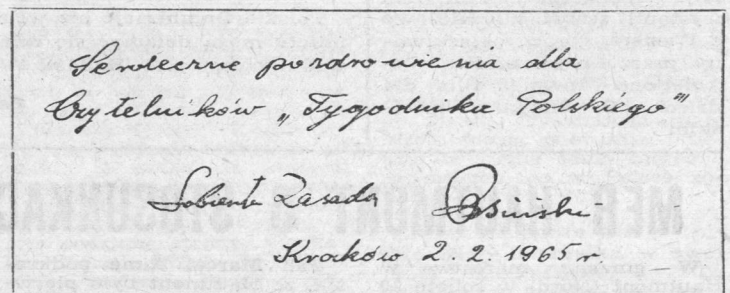 Serdeczne pozdrowienia dla
Czytelników „Tygodnika Polskiego”
Sobiesław Zasada Osiński
Kraków 2.2.1965 r.